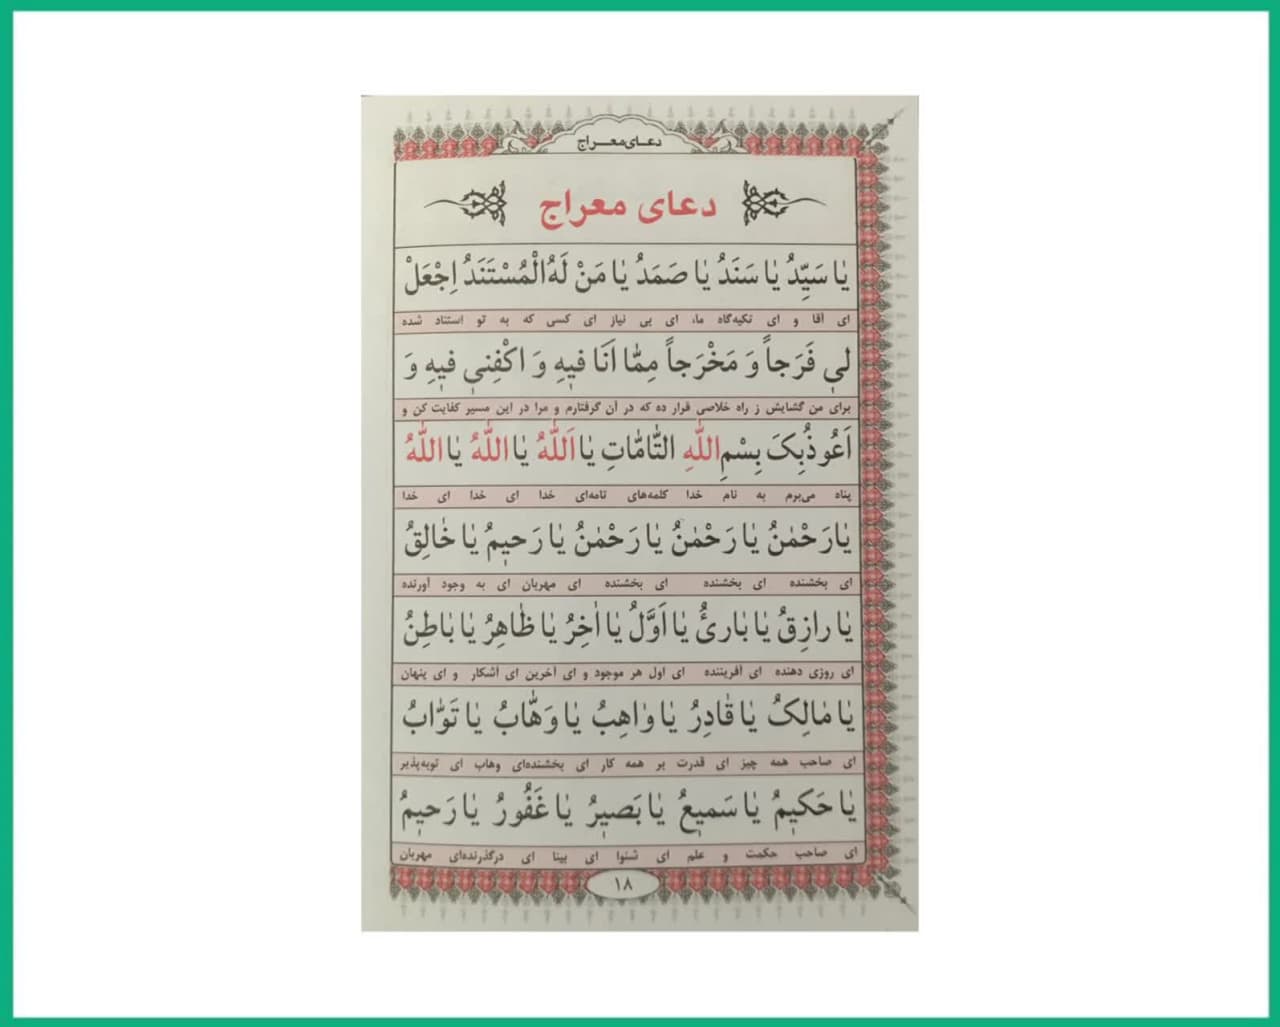 دعای معراج
دعای معراج
یٰا سَیِّدُ یٰا سَنَدُ یٰا صَمَدُ یٰا مَنْ لَهُ الْمُسْتَنَدُ اِجْعَلْ
ای آقا و ای تکیه‌گاه ما، ای بی نیاز ای کسی که به تو استناد شده
لی فَرَجاً وَ مَخْرَجاً مِمّٰا اَنَا فیهِ وَ اکْفِنی فیهِ وَ
برای من گشایش ز راه خلاصی قرار ده که در آن گرفتارم و مرا در این مسیر کفایت کن و
اَعُوذُبِکَ بِسْمِ اللّٰهِ التّٰامّٰاتِ یٰا اَللّٰهُ یٰا اللّٰهُ یٰا اللّٰهُ
پناه می‌برم به نام خدا کلمه‌های تامه‌ای خدا ای خدا ای خدا
یٰارَحْمٰنُ یٰا رَحْمٰنُ یٰا رَحْمٰنُ یٰا رَحیمُ یٰا خٰالِقُ
ای بخشنده ای بخشنده ای بخشنده ای مهربان ای به وجود آورنده
یٰا رازِقُ یٰا بٰارئُ یٰا اَوَّلُ یٰا اٰخِرُ یٰا ظٰاهِرُ یٰا بٰاطِنُ
ای روزی دهنده ای آفریننده ای اول هر موجود و ای آخرین ای آشکار و ای پنهان
یٰا مٰالِکُ یٰا قٰادِرُ یٰا وٰاهِبُ یٰا وَهّٰابُ یٰا تَوّٰابُ
ای صاحب همه چیز ای قدرت بر همه کار ای بخشنده‌ای وهاب ای توبه‌پذیر
یٰا حَکیمُ یٰا سَمیعُ یٰا بَصیرُ یٰا غَفُورُ یٰا رَحیمُ
ای صاحب حکمت و علم ای شنوا ای بینا ای درگذرنده‌ای مهربان
۱۸